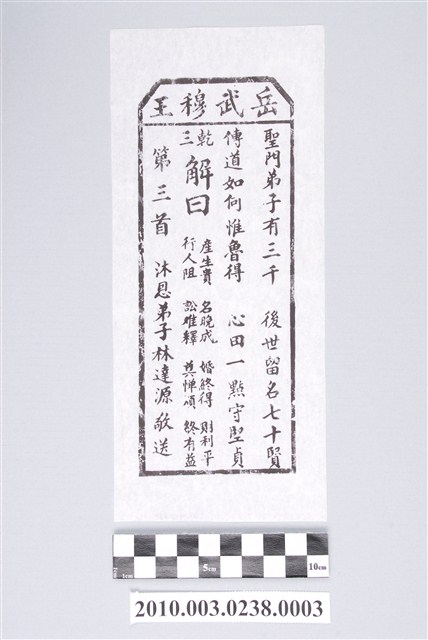 岳武穆王
聖門弟子有三千 後世留名七十賢
傳道如何惟魯得 心田一點守堅貞
乾三
解曰
產生實 名晚成 婚終得 財利平
行人阻 訟难釋 莫憚煩 終有益
第三首 沐恩弟子林達源敬送
1cm 5cm 10cm
2010.003.0238.0003